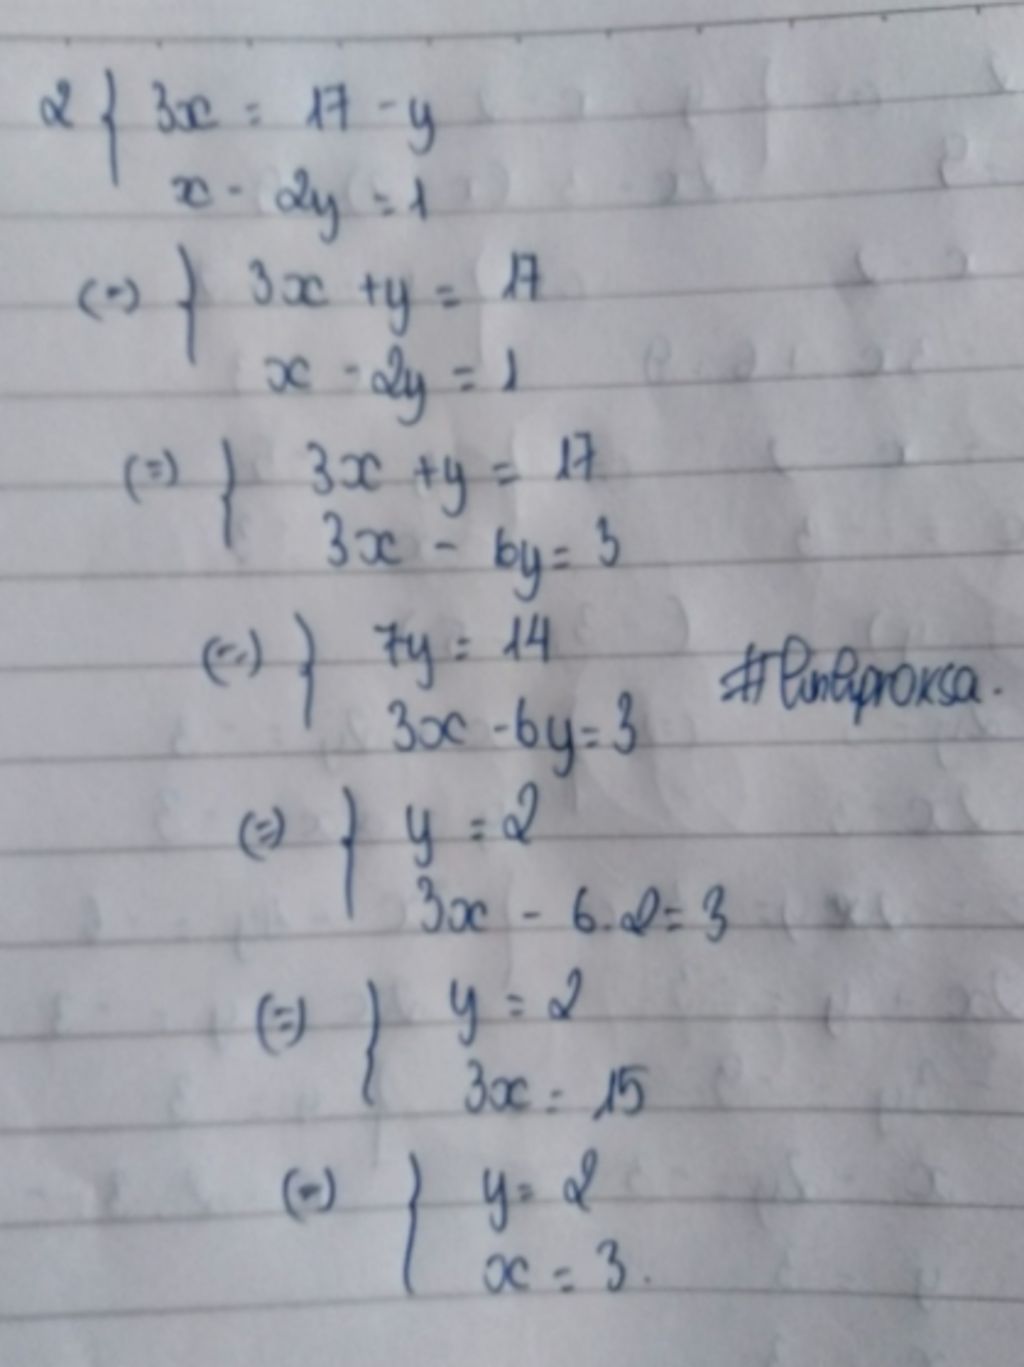 2 { 3x = 17 - y
x - 2y = 1
(=) } 3x + y = 17
x - 2y = 1
(=) } 3x + y = 17
3x - 6y = 3
(=) } 7y = 14
3x - 6y = 3
(=) } y = 2
3x - 6.2 = 3
(=) } y = 2
3x = 15
(=) } y = 2
x = 3.